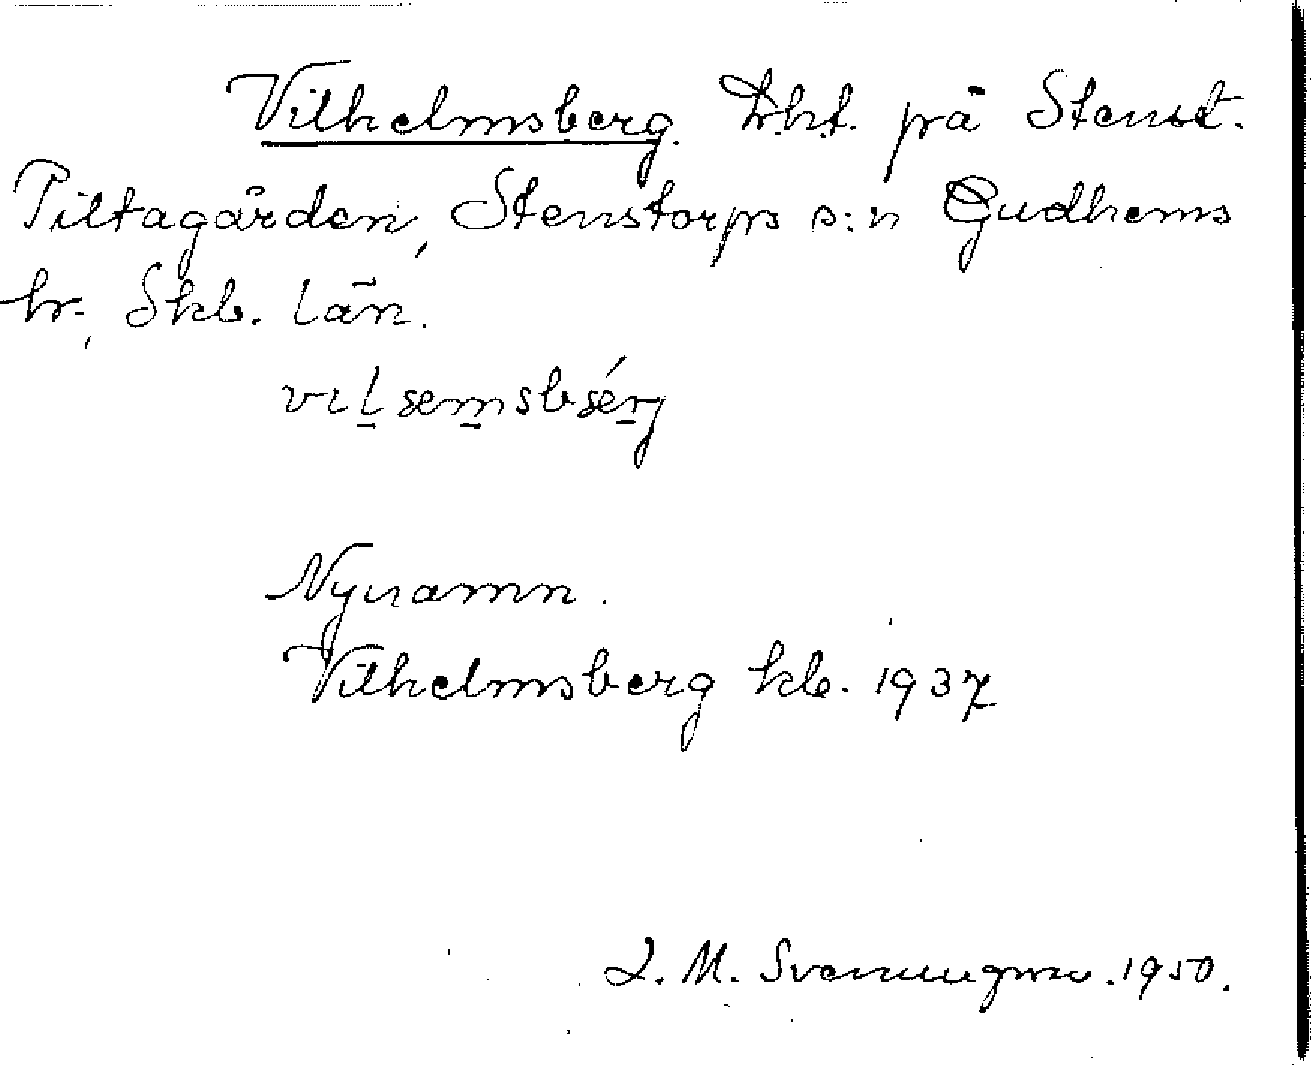 Vilhelmsberg. Lht. på Stenst.
Piltagården, Stenstorps s:n Gudhems
hr., Skb. län.
vɪlæmsbǽrj
Nynamn.
Vilhelmsberg kb. 1937
L. M. Svenungsson. 1950.